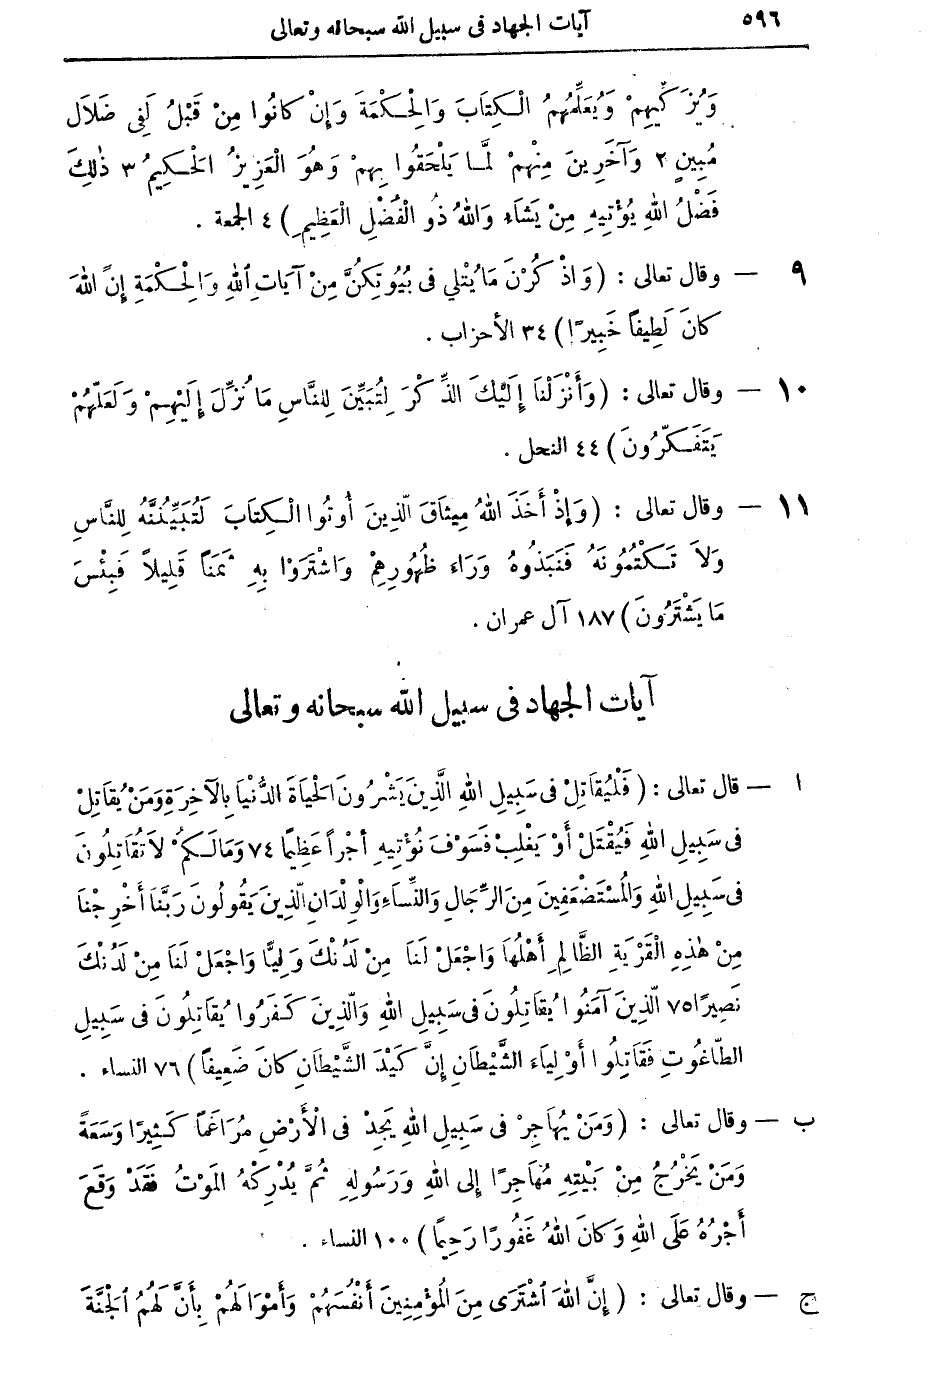 ٥٩٦ آيات الجهاد فى سبيل الله سبحانه وتعالى
وَيُزَكِّيهِمْ وَيُعَلِّمُهُمُ الْكِتَابَ وَالْحِكْمَةَ وَإِنْ كَانُوا مِنْ قَبْلُ لَفِى ضَلَالٍ
مُبِينٍ ٢ وَآخَرِينَ مِنْهُمْ لَمَّا يَلْحَقُوا بِهِمْ وَهُوَ الْعَزِيزُ الْحَكِيمُ ٣ ذٰلِكَ
فَضْلُ اللهِ يُؤْتِيهِ مِنْ يَشَاءُ وَاللهُ ذُو الْفَضْلِ الْعَظِيمِ) ٤ الجمعة .
٩ — وقال تعالى : (وَاذْكُرْنَ مَا يُتْلى فى بُيُوتِكُنَّ مِنْ آيَاتِ اللهِ وَالْحِكْمَةِ إِنَّ اللهَ
كَانَ لَطِيفاً خَبِيرًا) ٣٤ الأحزاب .
١٠ — وقال تعالى : (وَأَنْزَلْنَا إِلَيْكَ الذِّكْرَ لِتُبَيِّنَ لِلنَّاسِ مَا نُزِّلَ إِلَيْهِمْ وَلَعَلَّهُمْ
يَتَفَكَّرُونَ) ٤٤ النحل .
١١ — وقال تعالى : (وَإِذْ أَخَذَ اللهُ مِيثَاقَ الَّذِينَ أُوتُوا الْكِتَابَ لَتُبَيِّنُنَّهُ لِلنَّاسِ
وَلاَ تَكْتُمُونَهُ فَنَبَذُوهُ وَرَاء ظُهُورِهِمْ وَاشْتَرَوْا بِهِ ثَمَنَاً قَلِيلاً فَبِئْسَ
مَا يَشْتَرُونَ) ١٨٧ آل عمران .
آيات الجهاد فى سبيل الله سبحانه وتعالى
ا — قال تعالى : (فَلْيُقَاتِلْ فى سَبِيلِ اللهِ الَّذِينَ يَشْرُونَ الْحَيَاةَ الدُّنْيَا بِالآخِرَةِ وَمَنْ يُقَاتِلْ
فى سَبِيلِ اللهِ فَيُقْتَلْ أَوْ يَغْلِبْ فَسَوْفَ نُؤْتِيهِ أَجْراً عَظِيمًا ٧٤ وَمَالَكُمْ لاَ تُقَاتِلُونَ
فى سَبِيلِ اللهِ وَالْمُسْتَضْعَفِينَ مِنَ الرِّجَالِ وَالنِّسَاءِ وَالْوِلْدَانِ الَّذِينَ يَقُولُونَ رَبَّنَا أَخْرِجْنَا
مِنْ هٰذِهِ الْقَرْيَةِ الظَّالِمِ أَهْلُهَا وَاجْعَلْ لَنَا مِنْ لَدُنْكَ وَلِيًّا وَاجْعَلْ لَنَا مِنْ لَدُنْكَ
نَصِيرًا ٧٥ الَّذِينَ آمَنُوا يُقَاتِلُونَ فى سَبِيلِ اللهِ وَالَّذِينَ كَفَرُوا يُقَاتِلُونَ فى سَبِيلِ
الطَّاغُوتِ فَقَاتِلُوا أَوْلِيَاءَ الشَّيْطَانِ إِنَّ كَيْدَ الشَّيْطَانِ كَانَ ضَعِيفاً) ٧٦ النساء .
ب — وقال تعالى : (وَمَنْ يُهَاجِرْ فى سَبِيلِ اللهِ يَجِدْ فى الْأَرْضِ مُرَاغَمًا كَثِيرًا وَسَعَةً
وَمَنْ يَخْرُجْ مِنْ بَيْتِهِ مُهَاجِرًا إِلى اللهِ وَرَسُولِهِ ثُمَّ يُدْرِكْهُ الْمَوْتُ فَقَدْ وَقَعَ
أَجْرُهُ عَلَى اللهِ وَكَانَ اللهُ غَفُورًا رَحِيمًا) ١٠٠ النساء .
ج — وقال تعالى : ( إِنَّ اللهَ اشْتَرَى مِنَ الْمُؤْمِنِينَ أَنْفُسَهُمْ وَأَمْوَالَهُمْ بِأَنَّ لَهُمُ الْجَنَّةَ